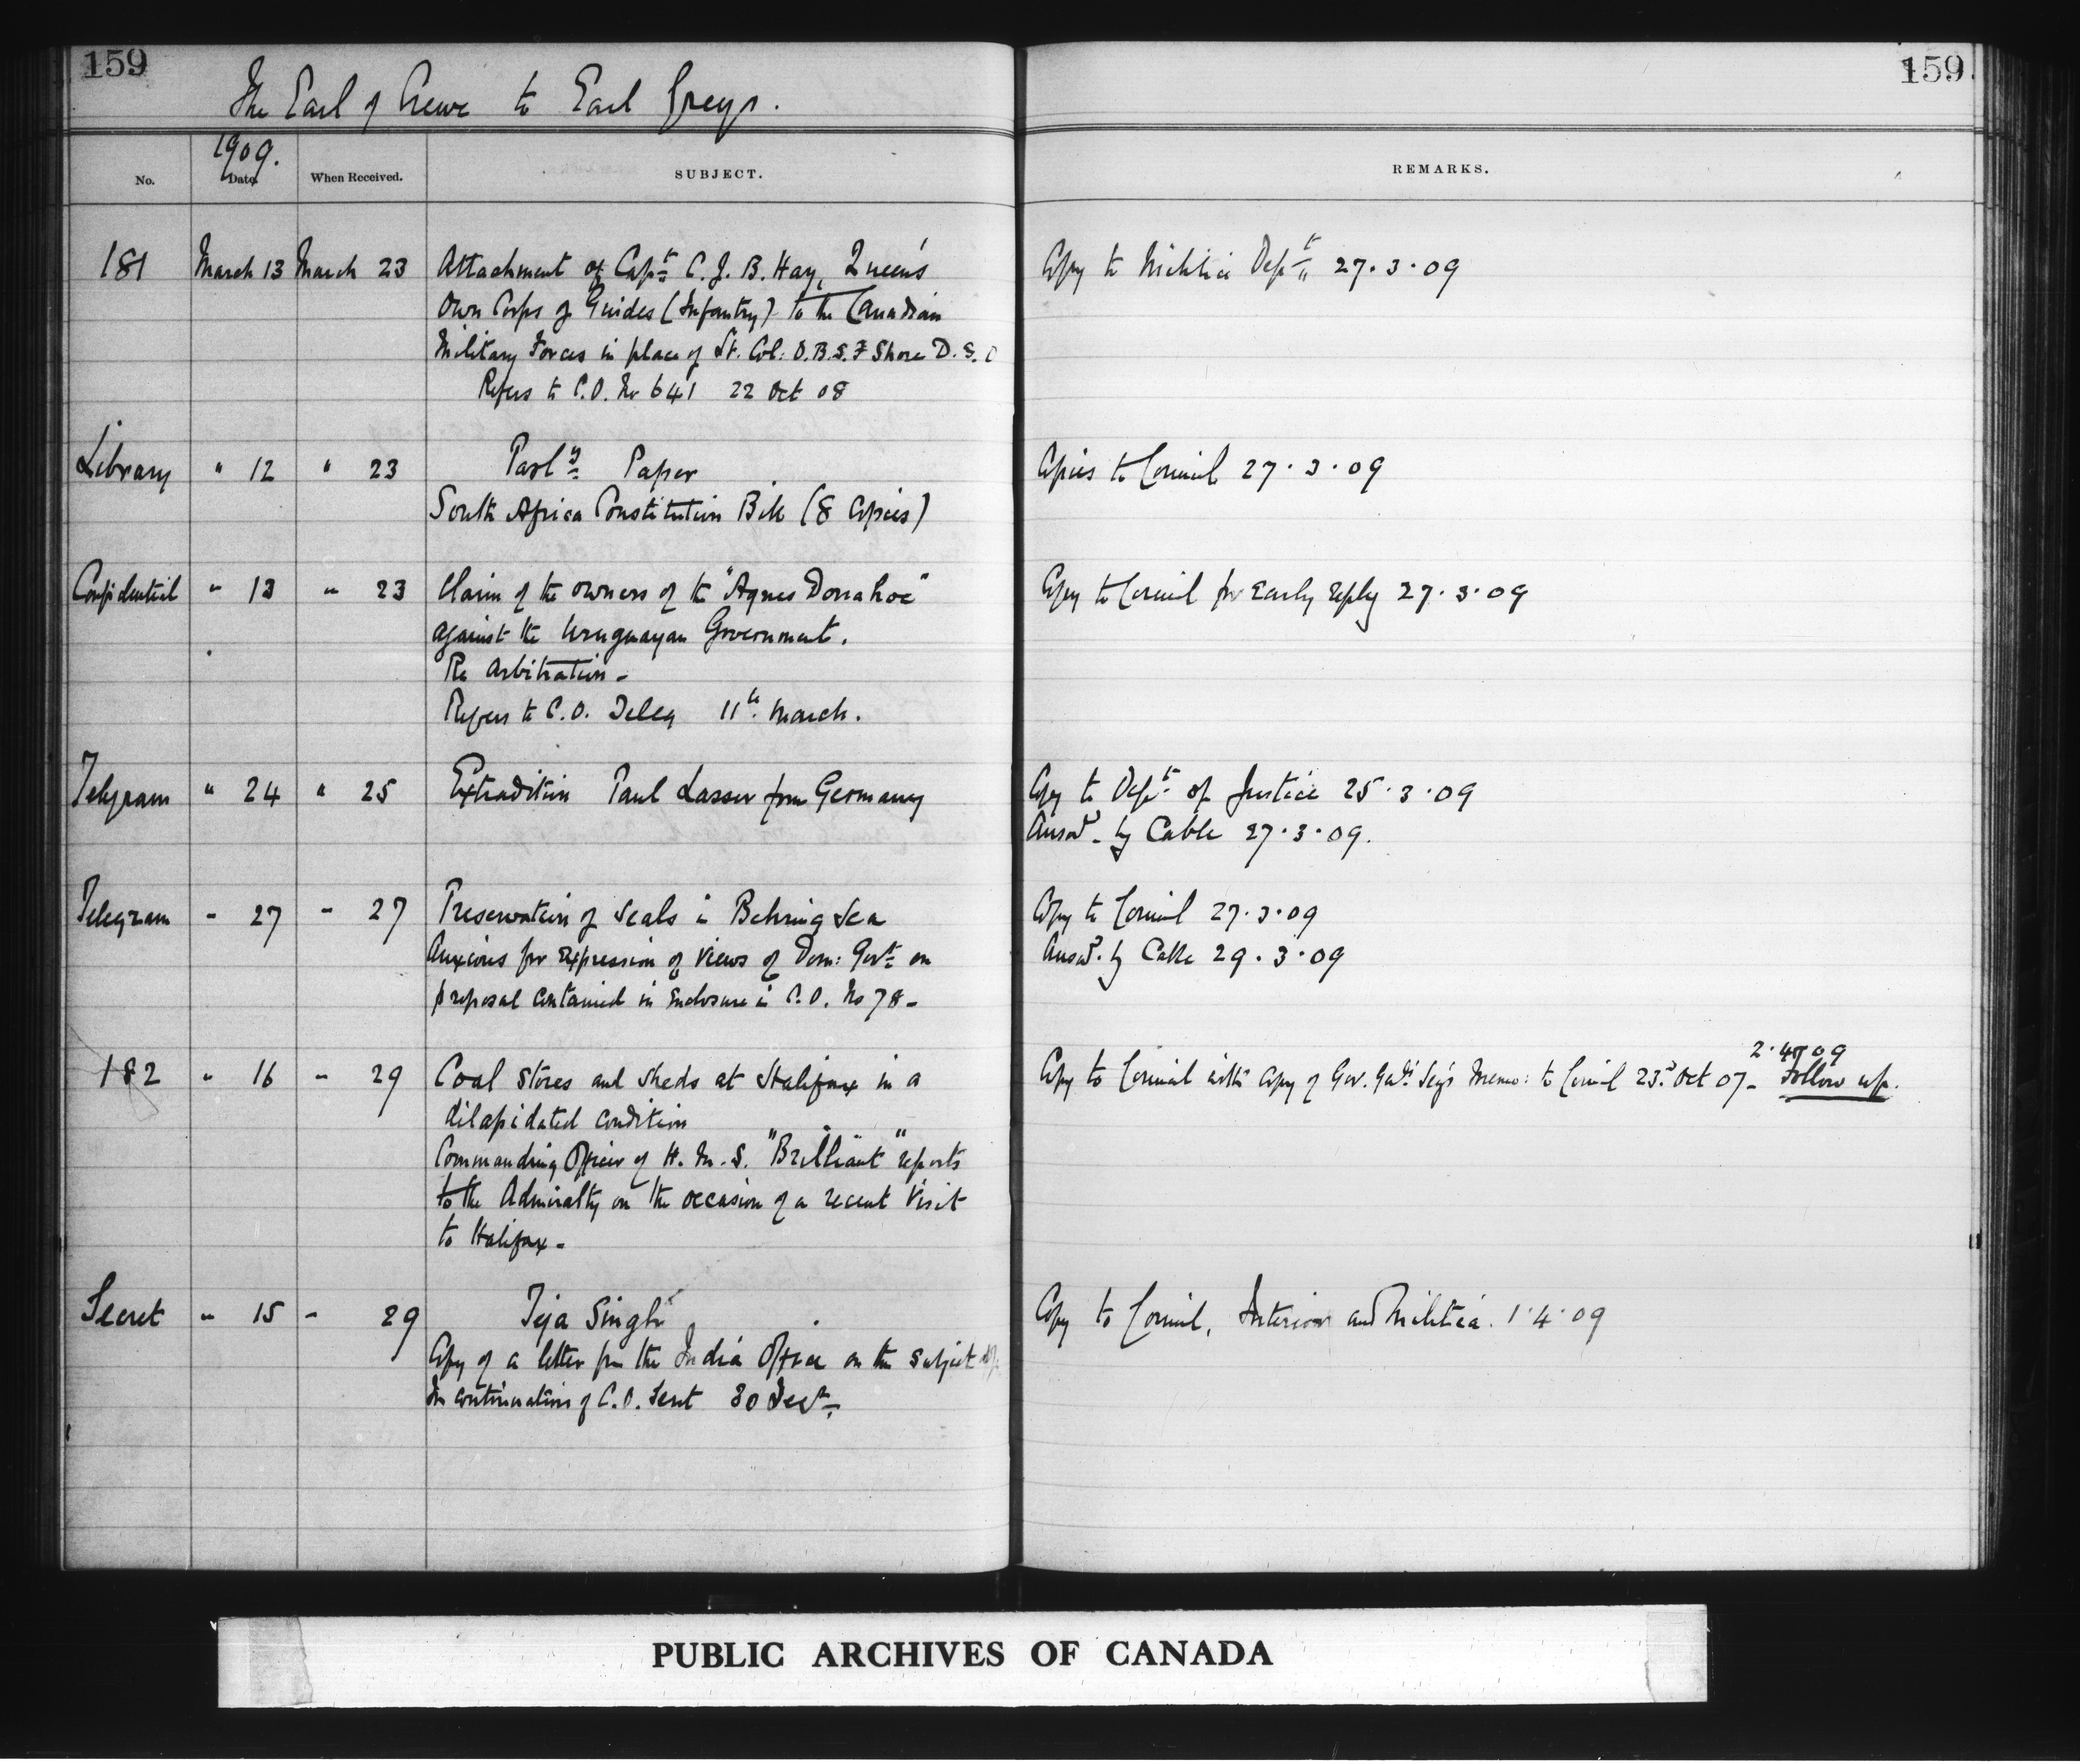 159
159
The Earl of Crewe to Earl Grey.
1909.
No. Date. When Received. SUBJECT. REMARKS.
181 March 13 March 23 Attachment of Capt. C. J. B. Hay, Queen's Copy to Militia Dept. 27.3.09
Own Corps of Guides (Infantry) to the Canadian
Military Forces in place of Lt. Col: O.B.S.F Shore D.S.O
Refers to C.O. No 641 22 Oct 08
Library " 12 " 23 Parly Paper Copies to Council 27.3.09
South Africa Constitution Bill (8 Copies)
Confidential " 13 " 23 Claim of the owners of the "Agnes Donahoe" Copy to Council for early reply 27.3.09
against the Uruguayan Government.
Re Arbitration -
Refers to C.O. Teleg 11th March.
Telegram " 24 " 25 Extradition Paul Lasser from Germany Copy to Dept. of Justice 25.3.09
Answd. by Cable 27.3.09.
Telegram " 27 " 27 Preservation of Seals in Behring Sea Copy to Council 27.3.09
Anxious for expression of views of Dom: Govt. on Answd. by Cable 29.3.09
proposal contained in Enclosure in C.O. No 78 -
2.4.09
182 " 16 " 29 Coal Stores and Sheds at Halifax in a Copy to Council with copy of Gov. Genl's Secy's Memo: to Council 23rd Oct 07 - Follow up.
dilapidated condition
Commanding Officer of H.M.S. "Brilliant" reports
to the Admiralty on the occasion of a recent visit
to Halifax -
Secret " 15 " 29 Teja Singh Copy to Council, Interior and Militia. 1.4.09
Copy of a letter from the India Office on the subject of
In continuation of C.O. Secret 30 Dec.
PUBLIC ARCHIVES OF CANADA